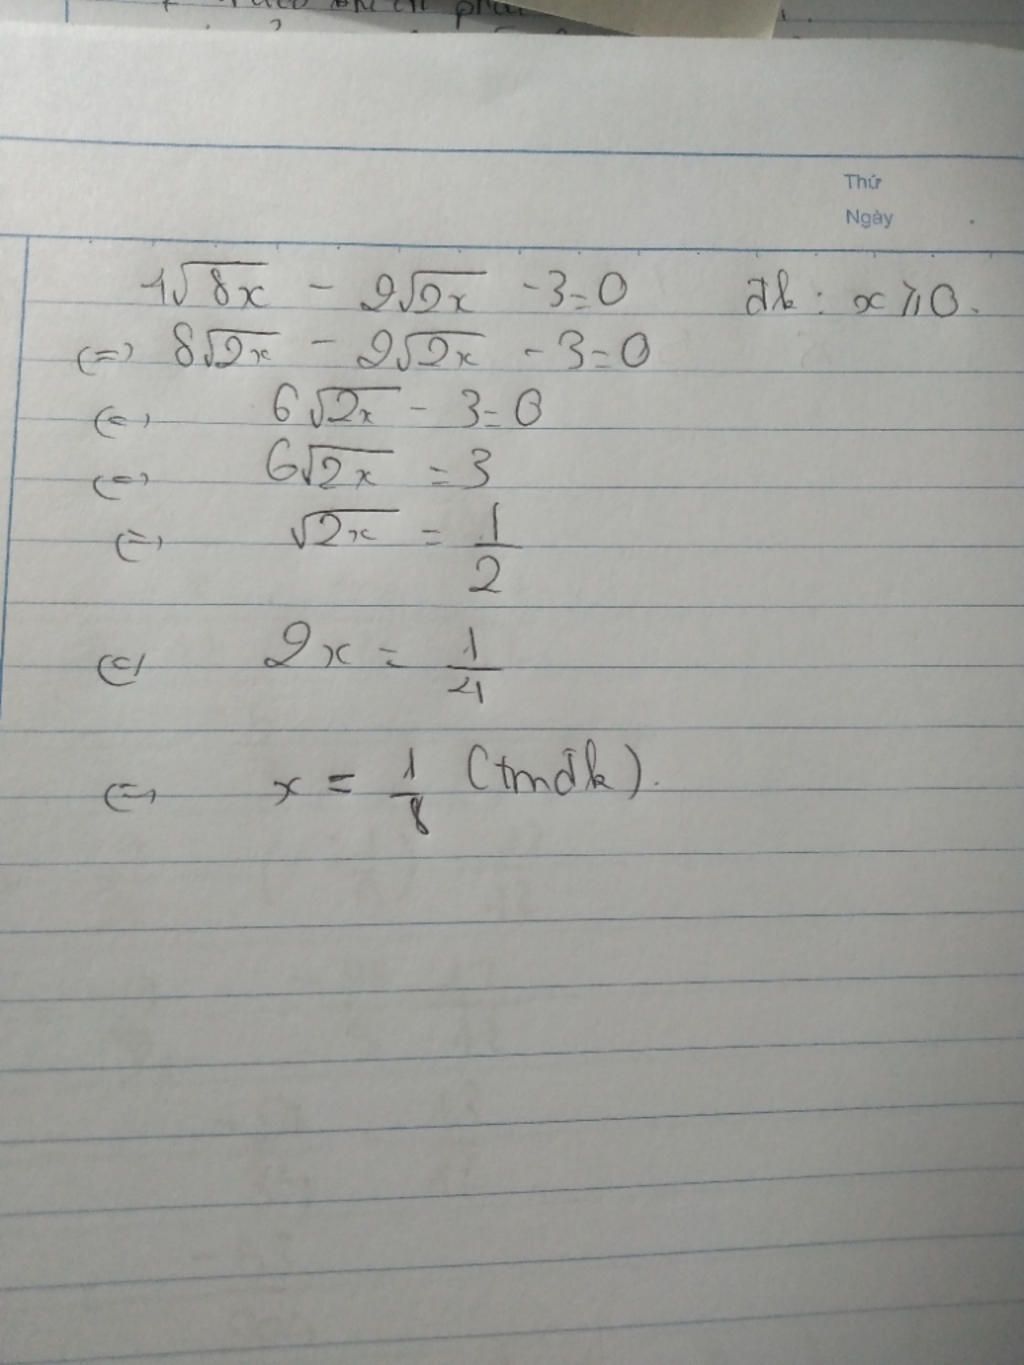 phải
Thứ
Ngày
4√8x - 2√2x - 3 = 0 đk : x ≥ 0.
(=) 8√2x - 2√2x - 3 = 0
(=) 6√2x - 3 = 0
(=) 6√2x = 3
(=) √2x = 1/2
(=) 2x = 1/4
(=) x = 1/8 (tmđk).